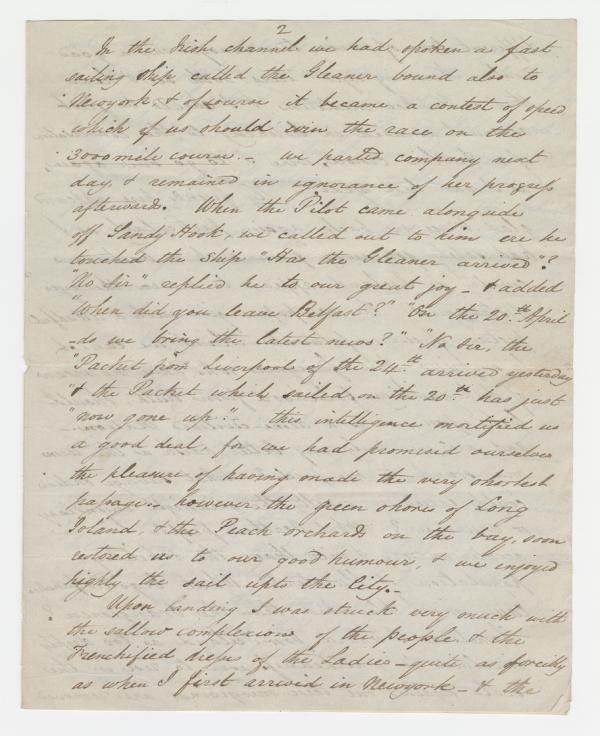 2
In the Irish channel we had spoken a fast
sailing ship called the Gleaner bound also to
Newyork, & of course it became a contest of speed
which of us should win the race on the
3000 mile course. – we parted company next
day, & remained in ignorance of her progress
afterwards. When the Pilot came alongside
off Sandy Hook, we called out to him ere he
touched the ship "Has the Gleaner arrived"?
"No Sir" – replied he to our great joy – & added
"When did you leave Belfast?" "On the 20.th April
– do we bring the latest news?" "No Sir, the
"Packet from Liverpool of the 24.th arrived yesterday
"& the Packet which sailed on the 20.th has just
"now gone up." this intelligence mortified us
a good deal for we had promised ourselves
the pleasure of having made the very shortest
passage. however, the green shores of Long
Island, & the Peach orchards on the bay, soon
restored us to our good humour, & we enjoyed
highly the sail upto the City. –
Upon landing I was struck very much with
the sallow complexions of the people & the
Frenchified dress of the Ladies – quite as forcibly
as when I first arrived in Newyork – & the